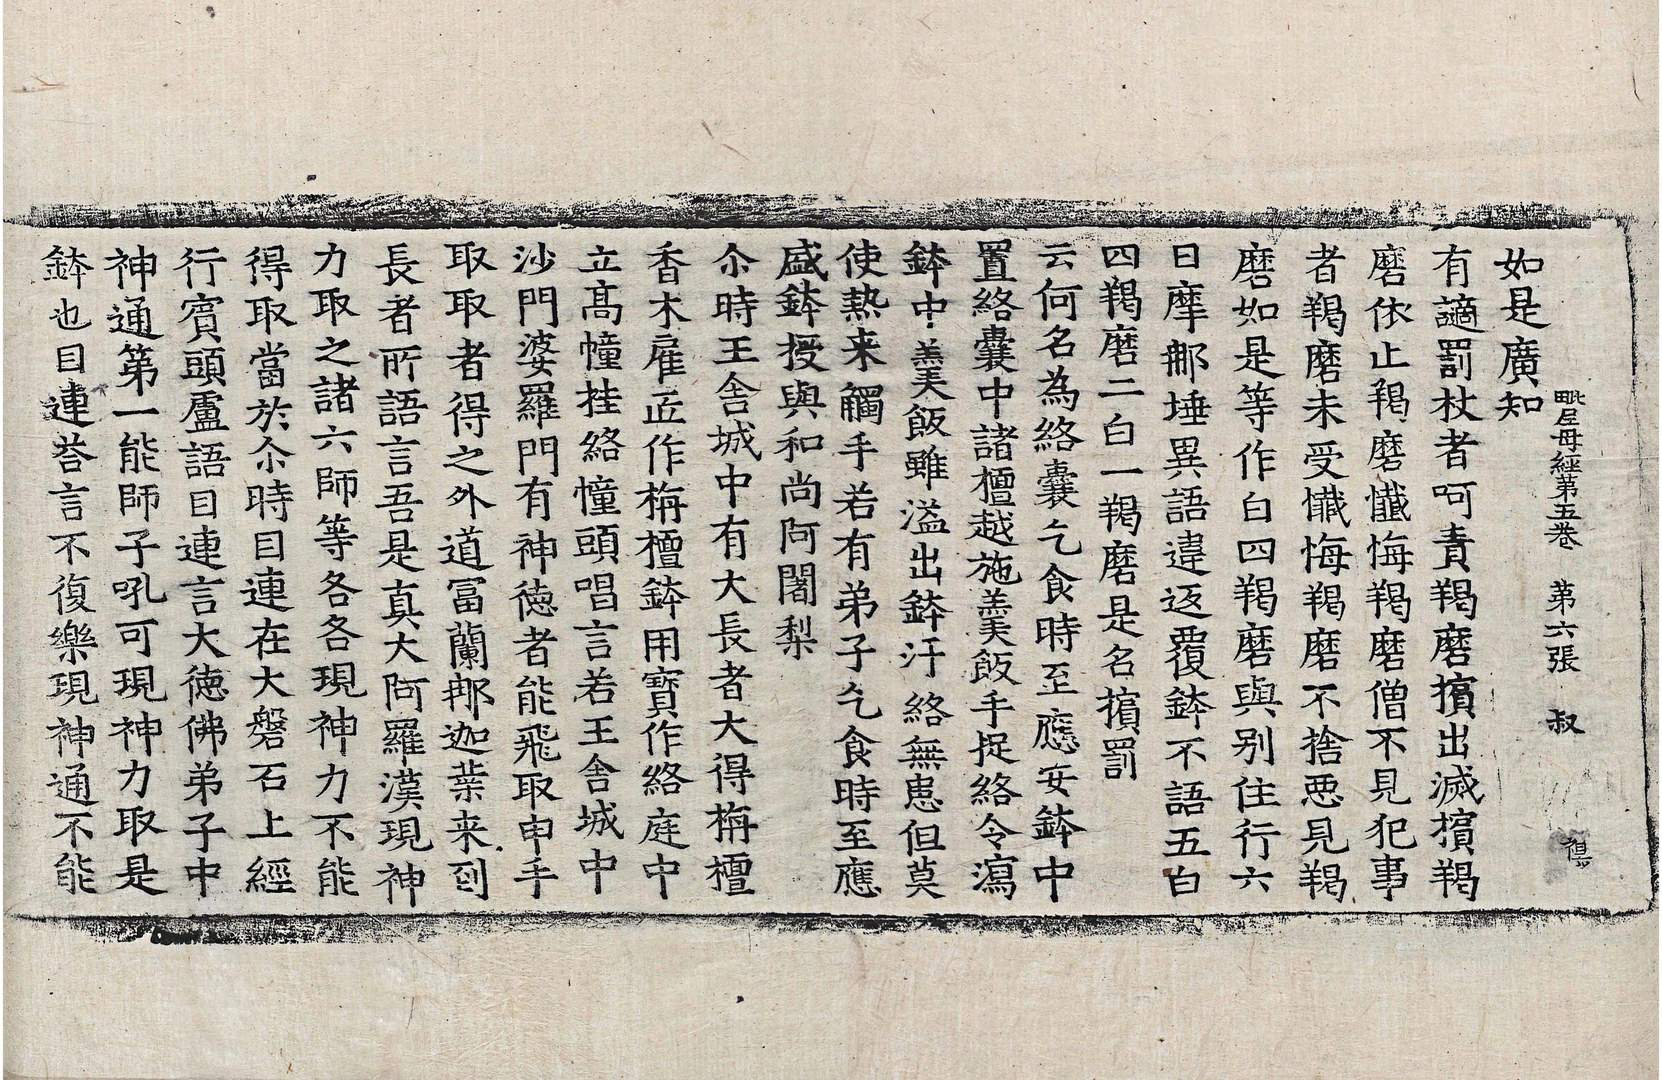 毗尼母經第五卷　第六張　叔
如是廣知
有讁罰杖者呵責羯磨擯出滅擯羯
磨依止羯磨懺悔羯磨僧不見犯事
者羯磨未受懺悔羯磨不捨惡見羯
磨如是等作白四羯磨與別住行六
日摩那埵異語違返覆鉢不語五白
四羯磨二白一羯磨是名擯罰
云何名為絡囊乞食時至應安鉢中
置絡囊中諸檀越施羹飯手捉絡令瀉
鉢中羹飯雖溢出鉢汙絡無患但莫
使熱来觸手若有弟子乞食時至應
盛鉢授與和尚阿闍梨
尒時王舍城中有大長者大得栴檀
香木雇匠作栴檀鉢用寶作絡庭中
立髙幢挂絡幢頭唱言若王舍城中
沙門婆羅門有神徳者能飛取申手
取取者得之外道冨蘭那迦葉来到
長者所語言吾是真大阿羅漢現神
力取之諸六師等各各現神力不能
得取當於尒時目連在大磐石上經
行賓頭盧語目連言大徳佛弟子中
神通第一能師子吼可現神力取是
鉢也目連荅言不復樂現神通不能